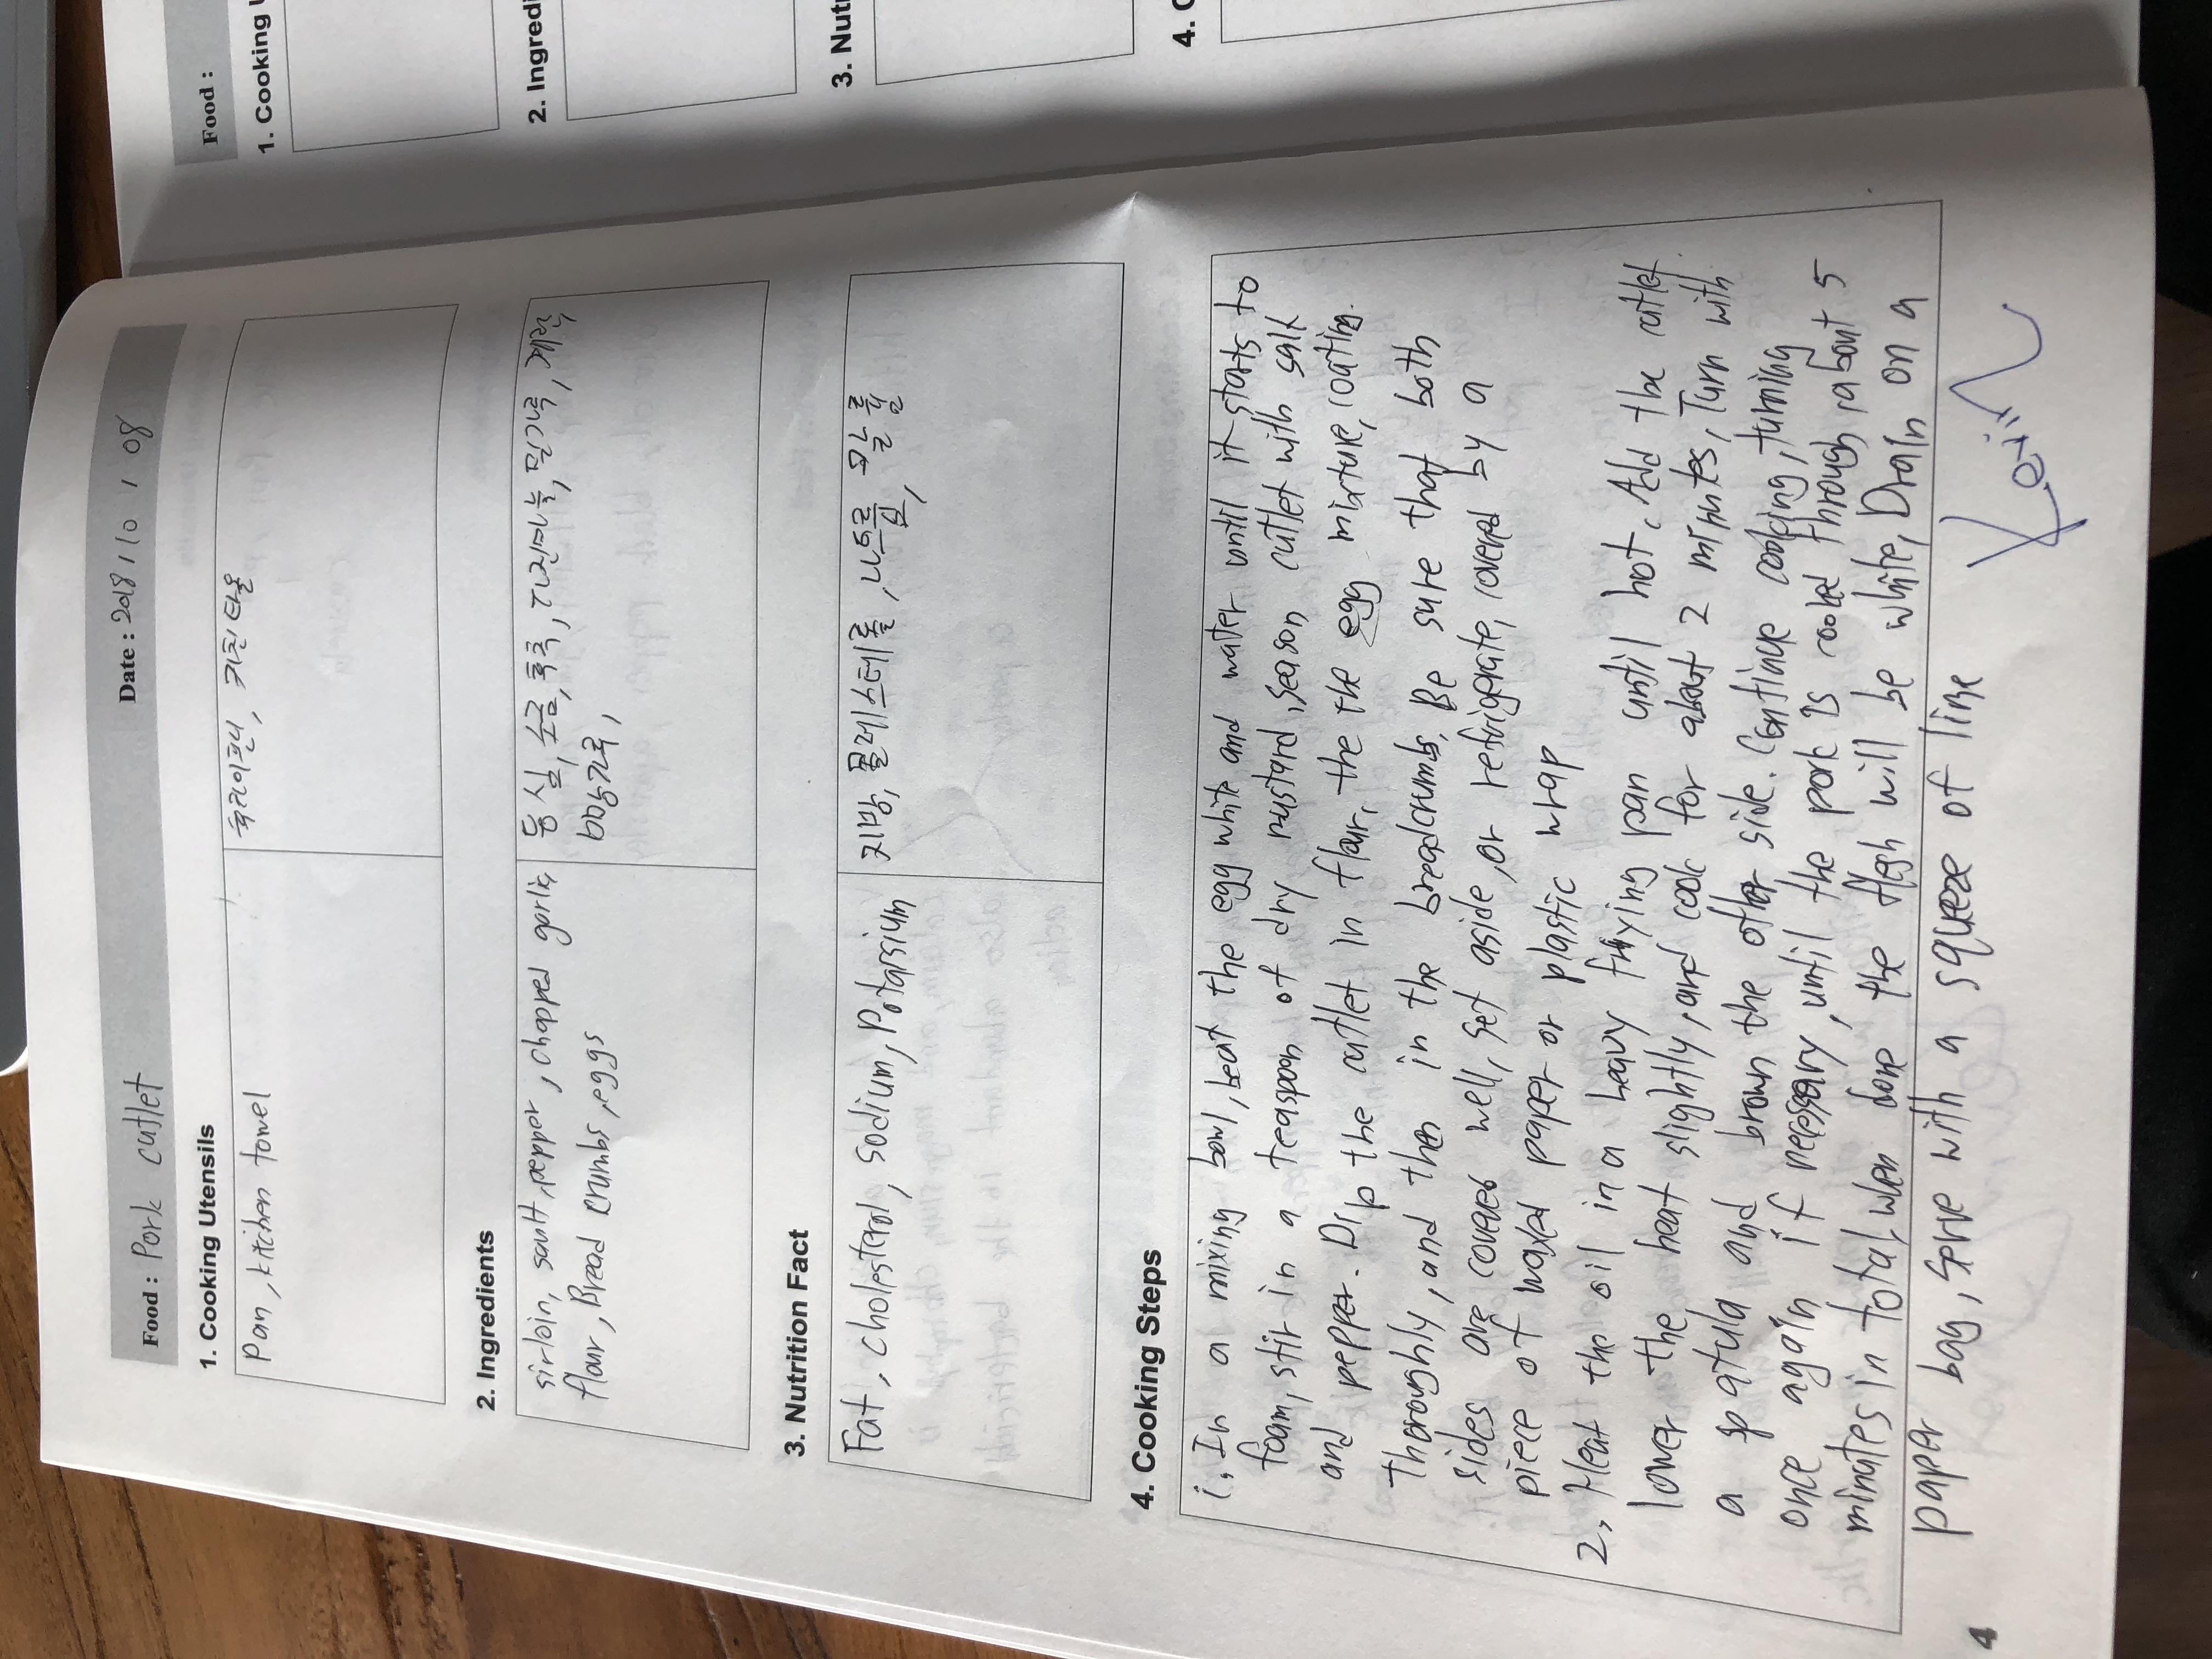 Food : Pork cutlet Date : 2018 / 10 / 08
1. Cooking Utensils
Pan, kitchen towel
후라이팬, 키친타올
2. Ingredients
sirloin, sault, pepper, chopped garlic,
flour, Bread crumbs, eggs
등심, 소금, 후추, 다진마늘, 밀가루, 계란
빵가루,
3. Nutrition Fact
Fat, cholesterol, sodium, Potassium
지방, 콜레스테롤, 나트륨, 칼륨
4. Cooking Steps
1, In a mixing bowl, beat the egg white and water until it starts to
foam, stir in a teaspoon of dry mustard, season cutlet with salt
and pepper. Dip the cutlet in flour, the the egg mixture, coating.
thoroughly, and then in the breadcrumbs, Be sure that both
sides are covered well, set aside, or refrigerate, covered by a
piece of waxed paper or plastic wrap
2, Heat the oil in a heavy frying pan until hot. Add the cutlet.
lower the heat slightly, and cook for about 2 minutes, Turn with
a spatula and brown the other side. Continue cooking, turning
once again if necessary, until the pork is cooked through, about 5
minutes in total, when done, the flesh will be white, Drain on a
paper bag, serve with a squeeze of lime
4
Food :
1. Cooking U
2. Ingredi
3. Nutr
4. C